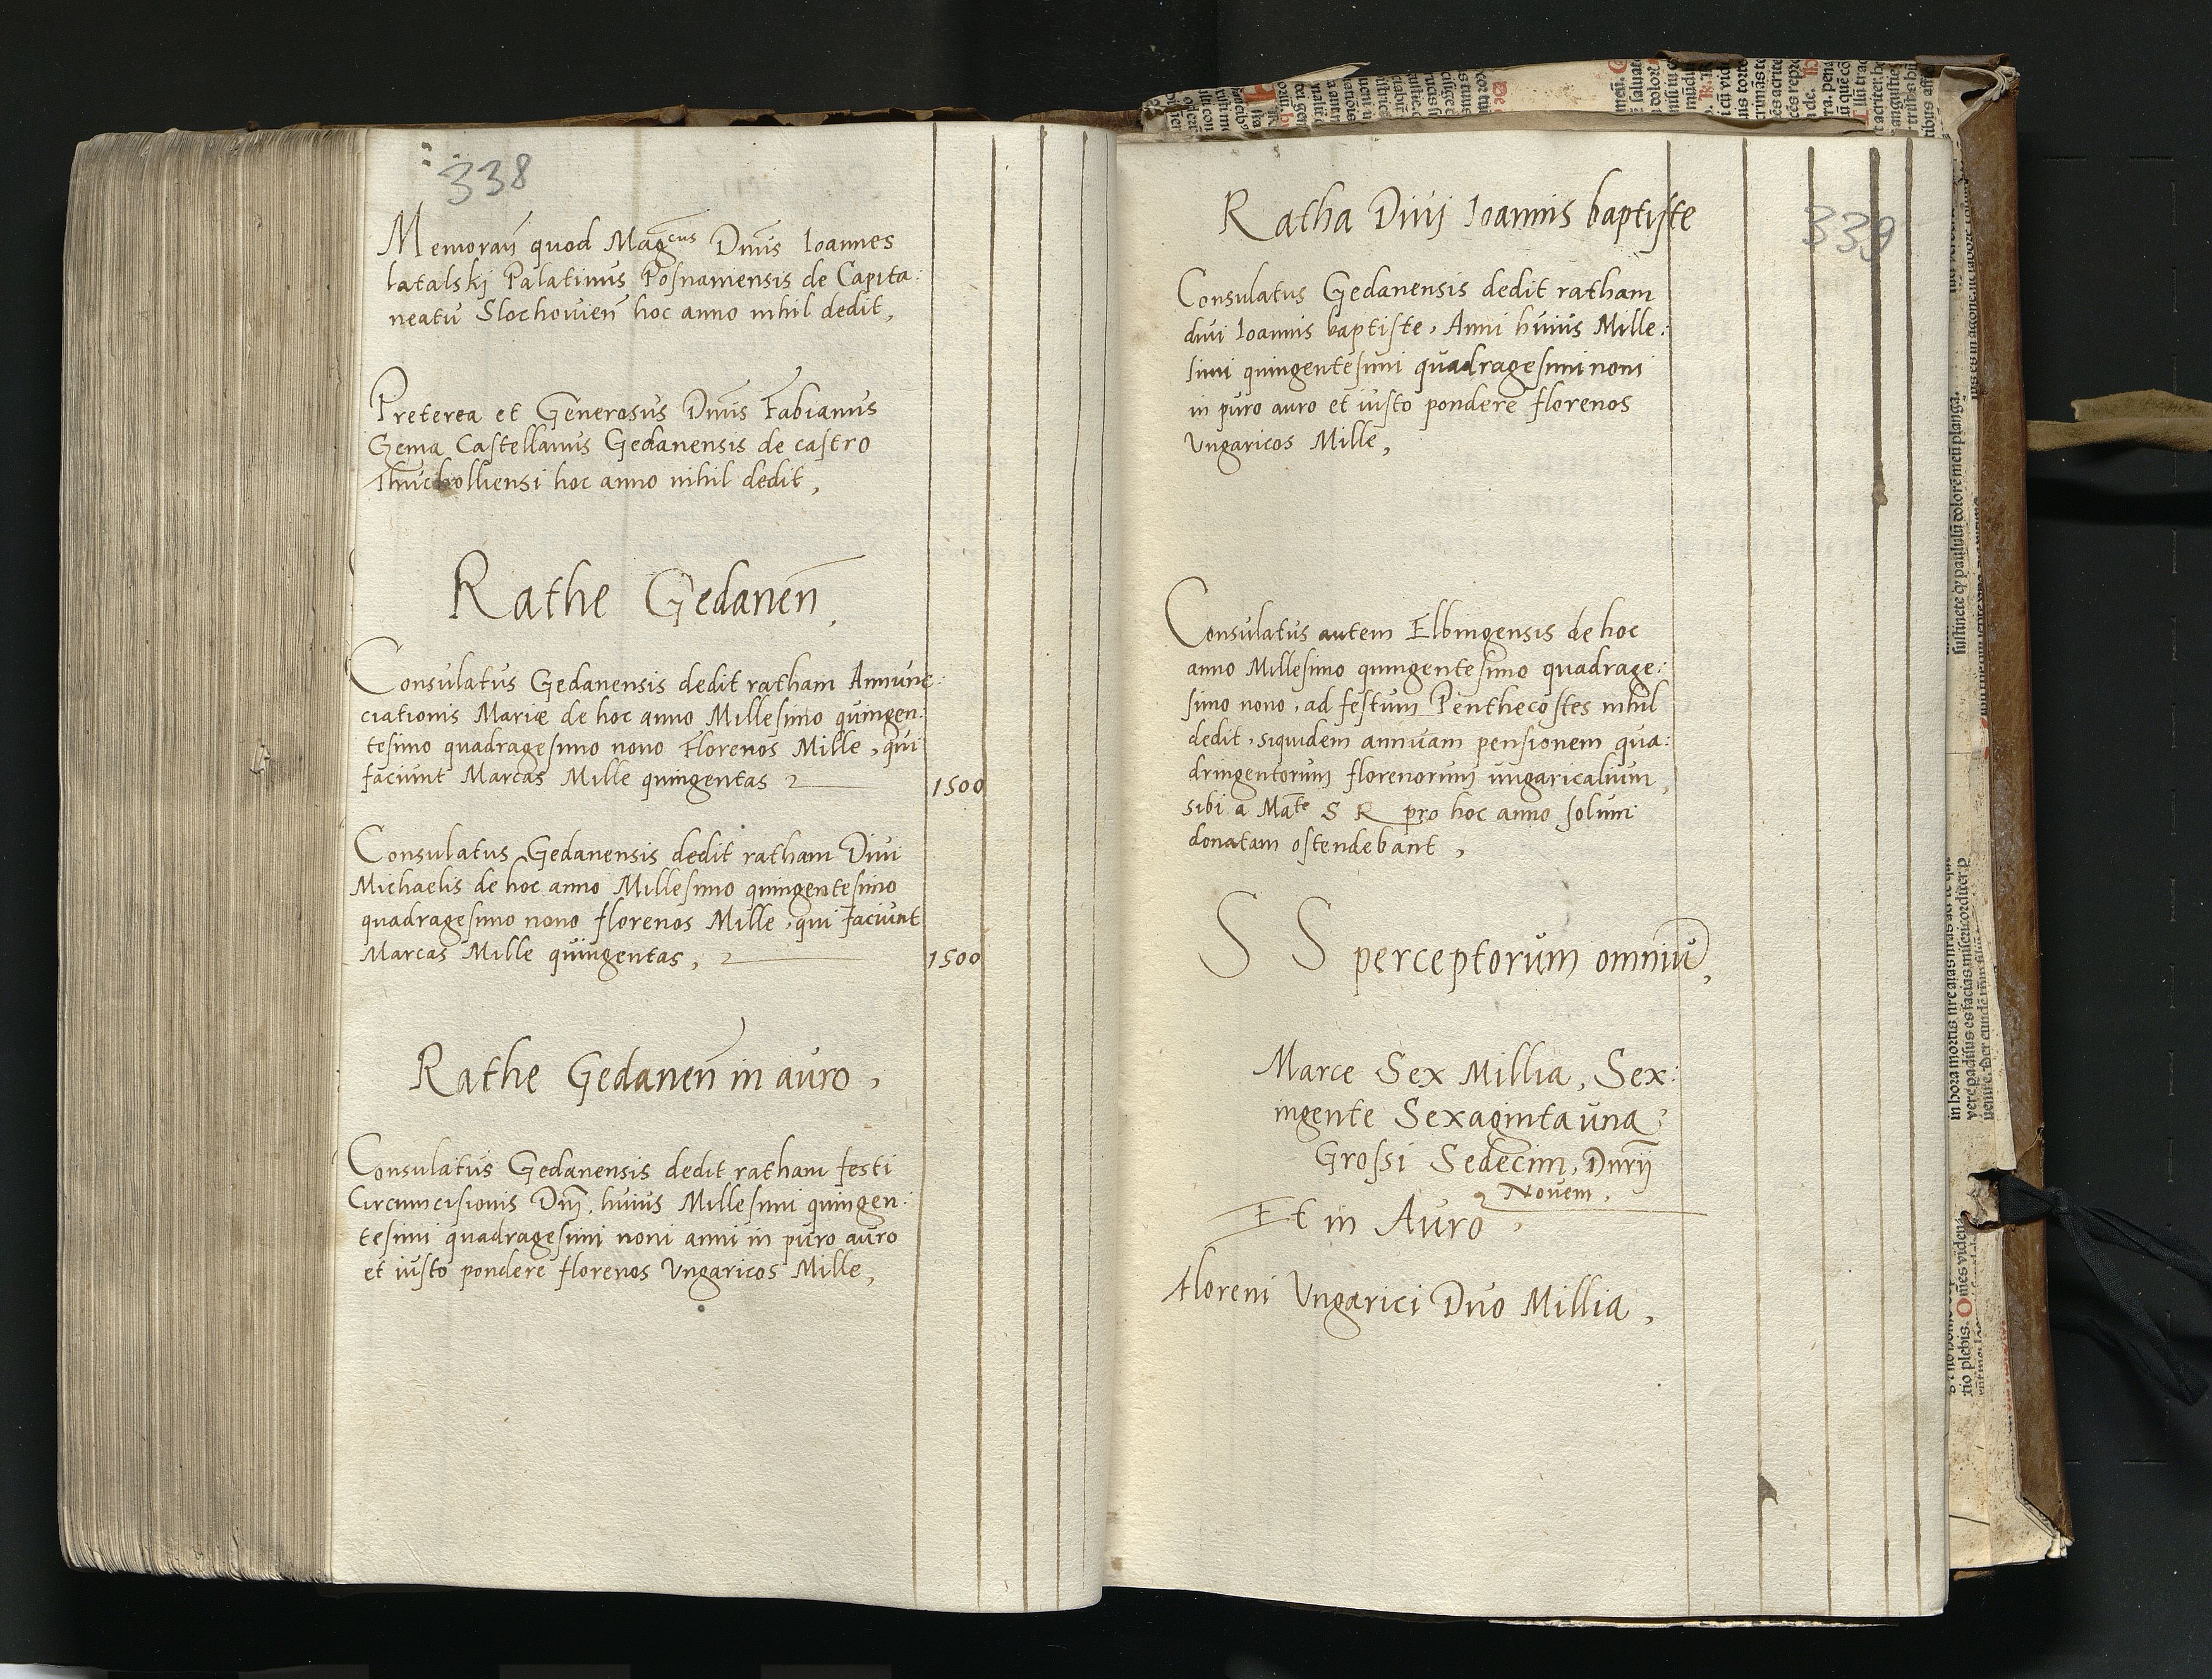 338
Memoran̄ quod Magcus Dn̄us Ioannes
latalskj Palatinus Posnaniensis de Capita:
neatu Slochovien̄ hoc anno nihil dedit,
Preterea et Generosus Dn̄us Fabianus
Gema Castellanus Gedanensis de castro
hoc anno nihil dedit,
Rathe Gedanen̄,
Consulatus Gedanensis dedit ratham Annunc:
ciationis Mariæ de hoc anno Millesimo quingen:
tesimo quadragesimo nono Florenos Mille, qui
faciunt Marcas Mille quingentas 1500
Consulatus Gedanensis dedit ratham Divi
Michaelis de hoc anno Millesimo quingentesimo
quadragesimo nono florenos Mille, qui faciunt
Marcas Mille quingentas, 1500
Rathe Gedanen̄ in auro,
Consulatus Gedanensis dedit ratham festi
Circumcisionis Dn̄j, huius Millesimi quingen:
tesimi quadragesimi noni anni in puro auro
et iusto pondere florenos Ungaricos Mille,
339
Ratha Divj Ioannis baptiste
Consulatus Gedanensis dedit ratham
divi Ioannis baptiste, Anni huius Mille:
simi quingentesimi quadragesimi noni
in puro auro et iusto pondere florenos
Ungaricos Mille,
Consulatus autem Elbingensis de hoc
anno Millesimo quingentesimo quadrage:
simo nono, ad festum Penthecostes nihil
dedit, siquidem annuam pensionem qua:
dringentorum florenorum ungaricalium,
sibi a Mate S R pro hoc anno solum
donatam ostendebant,
S S perceptorum omniū,
Marce Sex Millia, Sex:
ingente Sexaginta una
Grossi Sedecim, Dnrij
Novem,
Et in Auro,
floreni Ungarici Duo Millia,